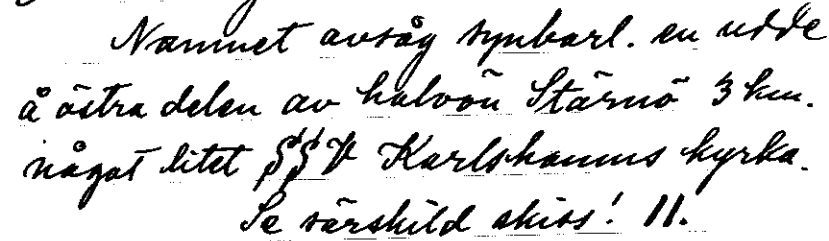 Namnet avsåg synbarl. en udde
å östra delen av halvön Stärnö 3 km.
något litet SSV Karlshamns kyrka.
Se särskild skiss! 11.